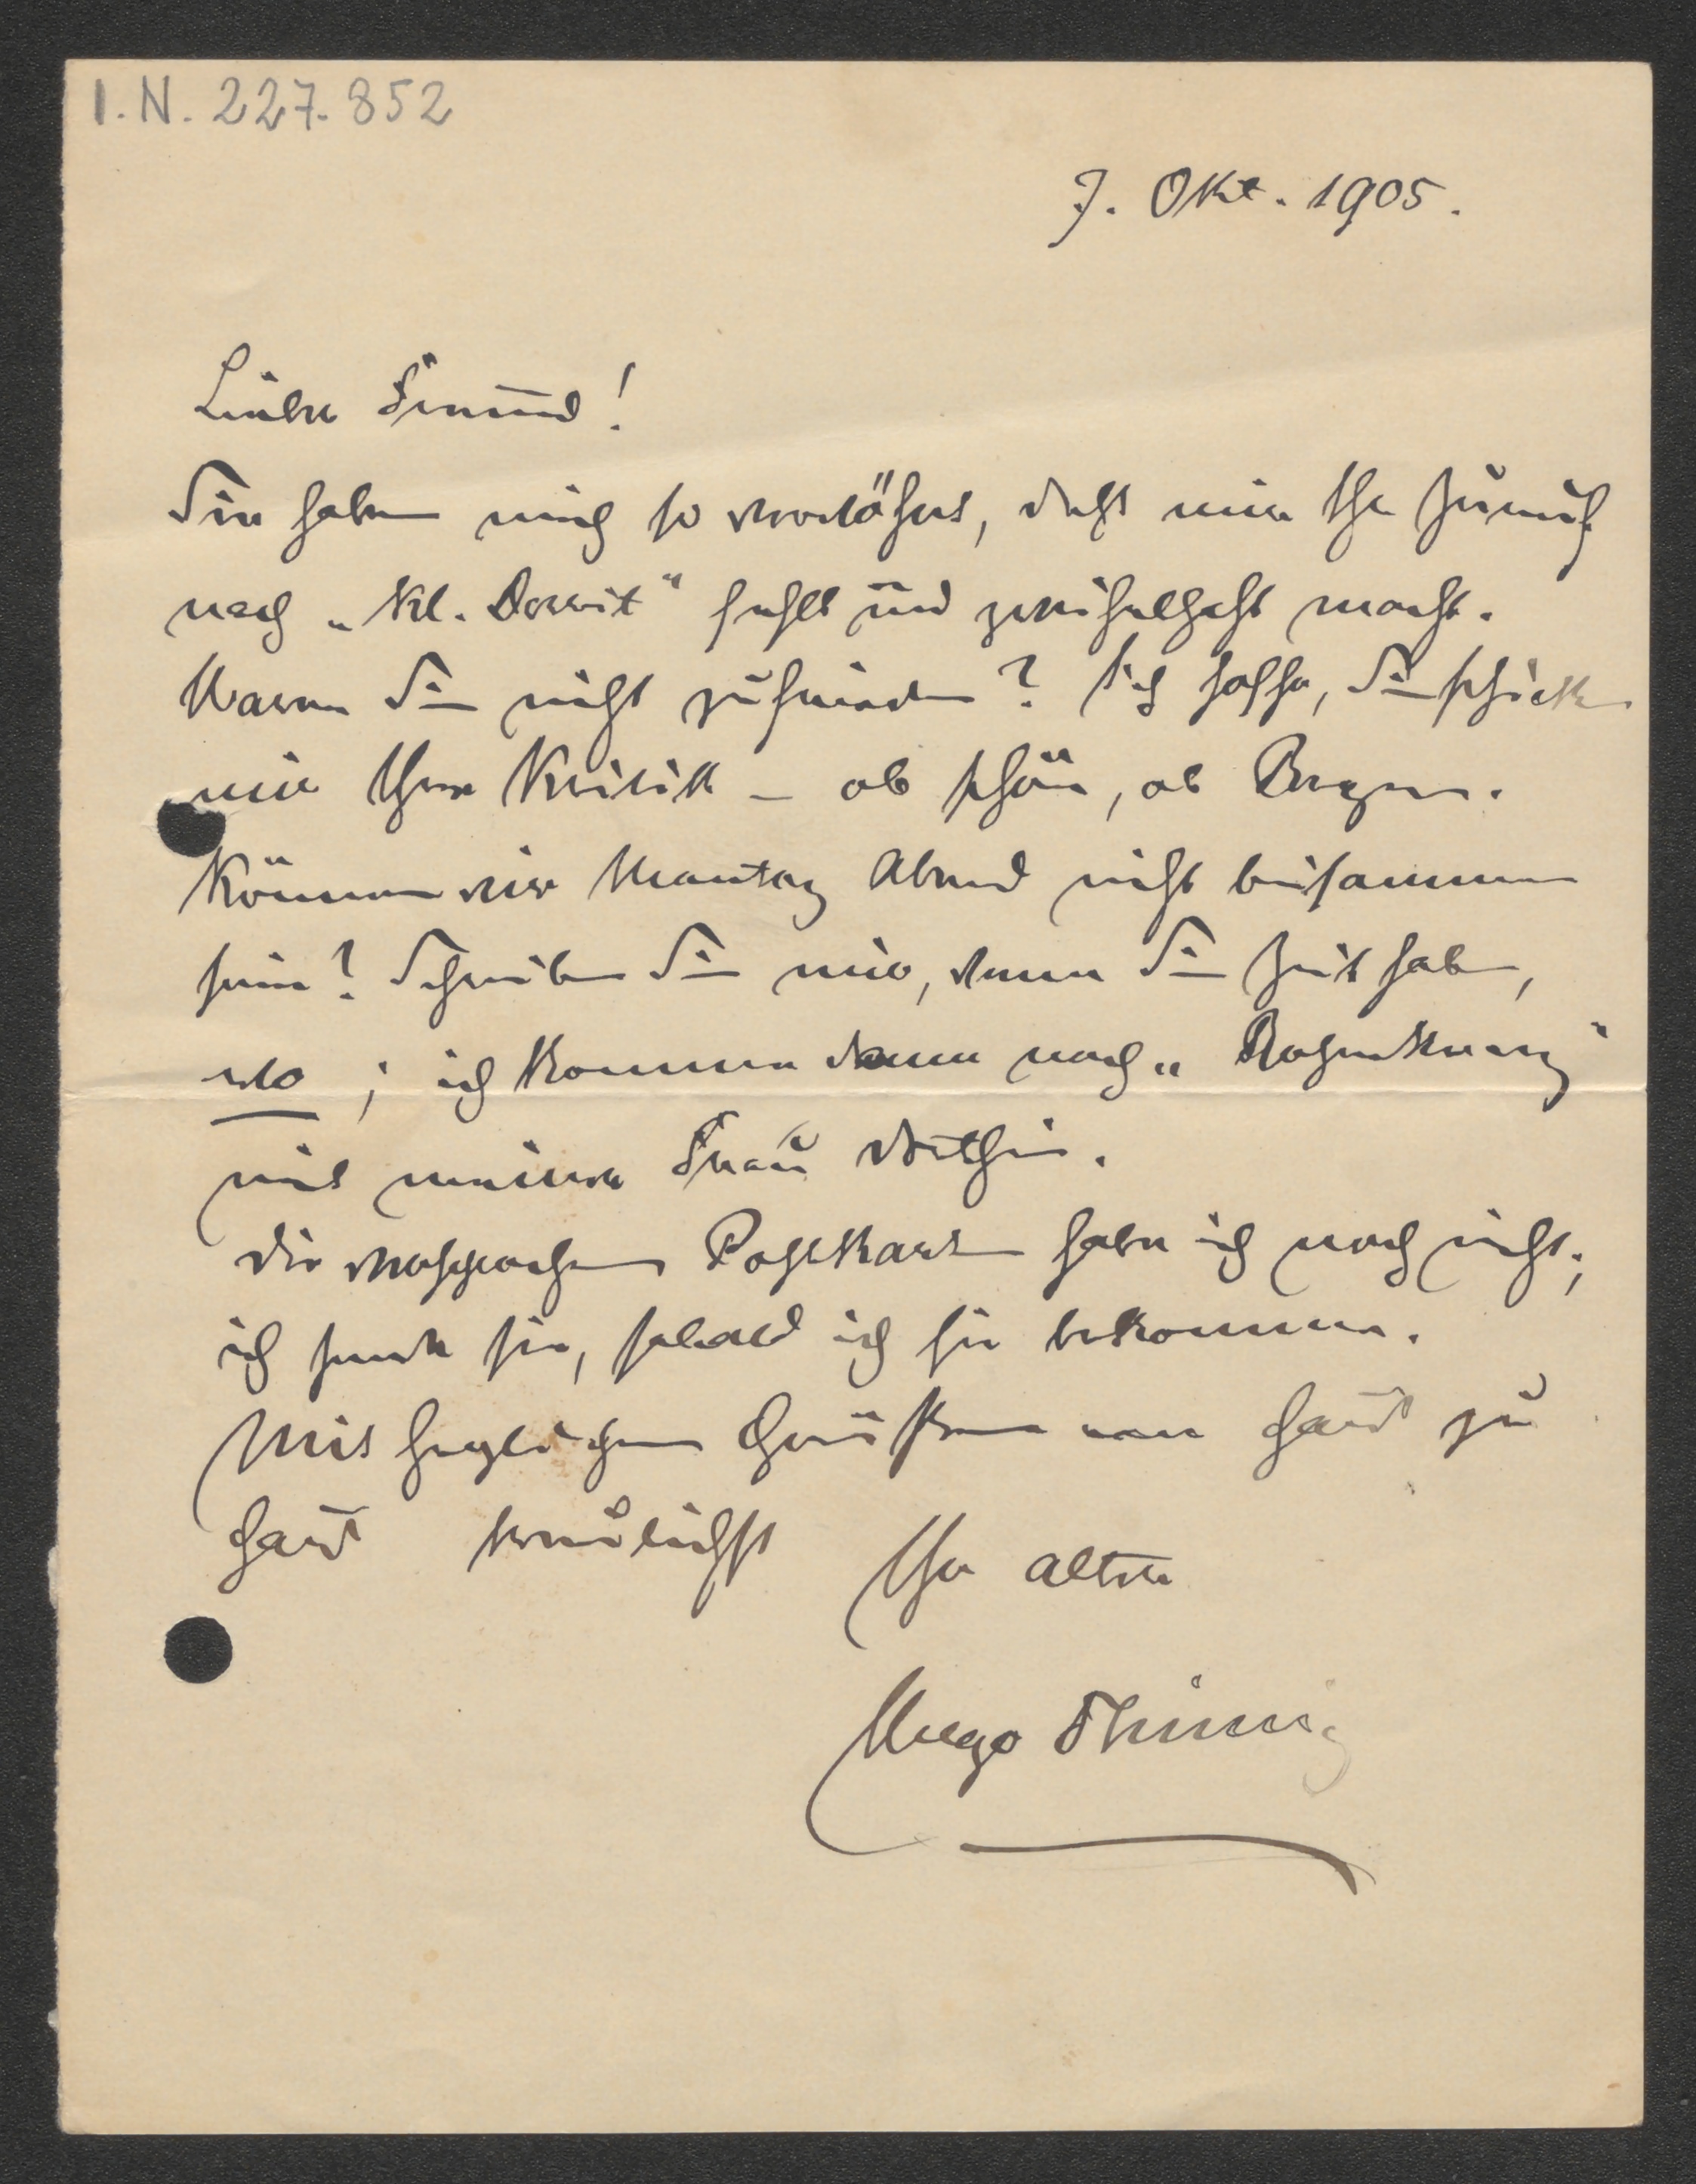 I. N. 227.852
7. Okt. 1905.
Lieber Freund!
Sie haben mich so verwöhnt, daß mir Ihr Zuruf
nach „Kl. Dorrit“ fehlt und zweifelhaft macht.
Waren Sie nicht zufrieden? Ich hoffe, Sie schicken
mir Ihre Kritik – ob schön, ob Regen.
Können wir Montag Abend nicht beisammen
sein? Schreiben Sie mir, wenn Sie Zeit haben,
wo; ich komme dann nach „Rosenkranz“
mit meiner Frau dorthin.
Die versprochenen Postkarten habe ich noch nicht;
ich sende sie, sobald ich sie bekomme.
Mit herzlichen Grüßen von Haus zu
Haus treulichst Ihr alter
Hugo Thimig